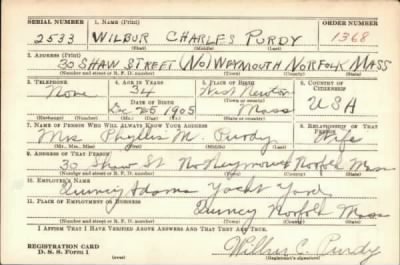 SERIAL NUMBER 1. NAME (Print) ORDER NUMBER
2533 WILBUR CHARLES PURDY 1368
(First) (Middle) (Last)
2. ADDRESS (Print)
30 SHAW STREET (NO) WEYMOUTH NORFOLK MASS
(Number and street or R. F. D. number) (Town) (County) (State)
3. TELEPHONE 4. AGE IN YEARS 5. PLACE OF BIRTH 6. COUNTRY OF CITIZENSHIP
None 34 West Newton
DATE OF BIRTH (Town or county)
Dec 25 1905 Mass USA
(Exchange) (Number) (Mo.) (Day) (Yr.) (State or country)
7. NAME OF PERSON WHO WILL ALWAYS KNOW YOUR ADDRESS 8. RELATIONSHIP OF THAT PERSON
Mrs Phyllis M. Purdy Wife
(Mr., Mrs., Miss) (First) (Middle) (Last)
9. ADDRESS OF THAT PERSON
30 Shaw St No Weymouth Norfolk Mass
(Number and street or R. F. D. number) (Town) (County) (State)
10. EMPLOYER'S NAME
Quincy Adams Yacht Yard
11. PLACE OF EMPLOYMENT OR BUSINESS
Quincy Norfolk Mass
(Number and street or R. F. D. number) (Town) (County) (State)
I AFFIRM THAT I HAVE VERIFIED ABOVE ANSWERS AND THAT THEY ARE TRUE.
REGISTRATION CARD
D. S. S. Form 1 (over) Wilbur C. Purdy
(Registrant's signature)